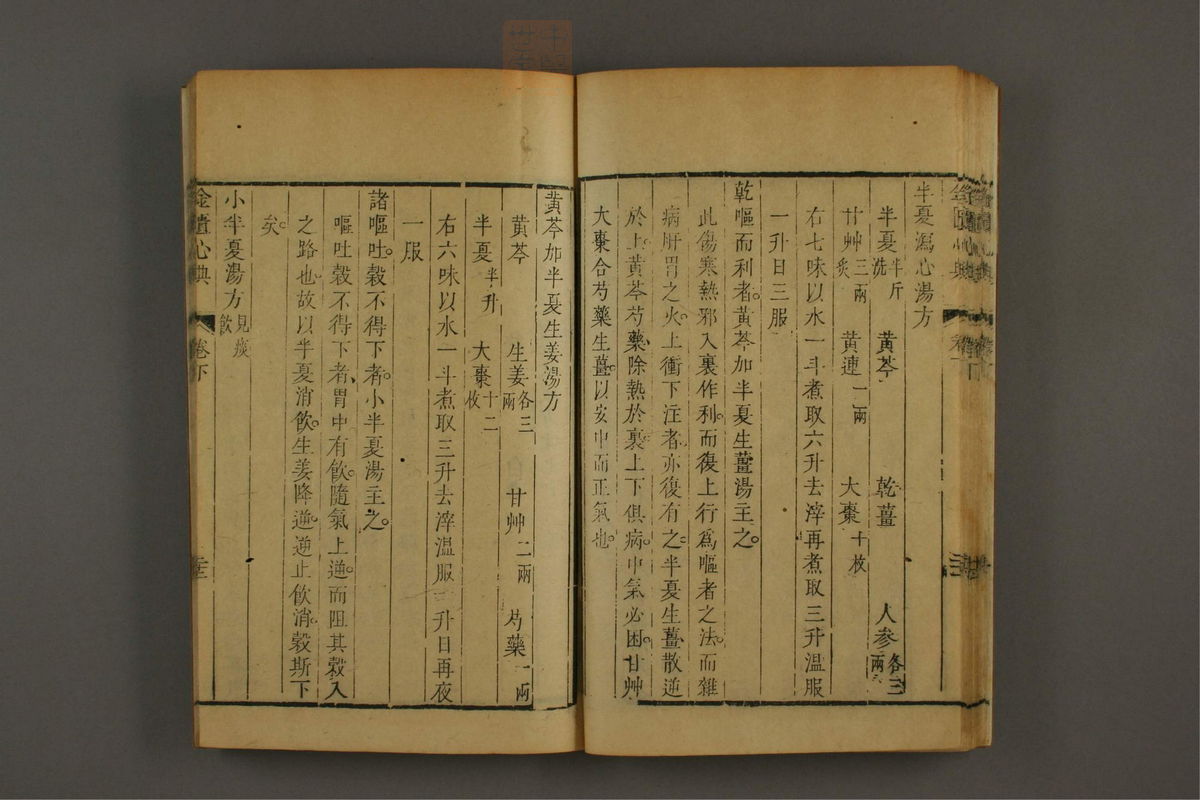 半夏瀉心湯方
半夏半斤洗　黄芩　乾薑　人参各三兩
甘艸三兩炙　黄連一兩　大棗十枚
右七味以水一斗煮取六升去滓再煮取三升溫服
一升日三服
乾嘔而利者。黄芩加半夏生薑湯主之。
此傷寒熱邪入裏作利。而復上行爲嘔者之法。而雜
病肝胃之火。上衝下注者。亦復有之。半夏生薑散逆
於上。黄芩芍藥除熱於裏。上下俱病。中氣必困。甘艸
大棗合芍藥生薑。以安中而正氣也。
黄芩加半夏生姜湯方
黄芩　生姜各三兩　甘艸二兩　芍藥一兩
半夏半升　大棗十二枚
右六味以水一斗煮取三升去滓溫服一升日再夜
一服
諸嘔吐。穀不得下者。小半夏湯主之。
嘔吐穀不得下者、胃中有飲。隨氣上逆。而阻其穀入
之路也。故以半夏消飲。生姜降逆。逆止飲消。穀斯下
矣。
小半夏湯方見痰飲
金匱心典　卷下